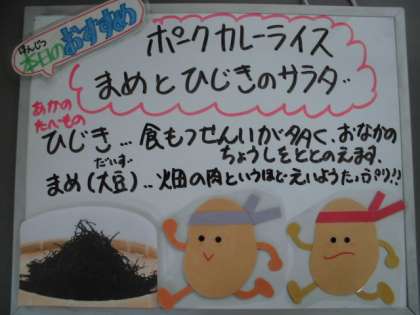 ほんじつ
本日のおすすめ
ポークカレーライス
まめとひじきのサラダ
あかの
たべもの
ひじき…食もつせんいが多く、おなかの
ちょうしをととのえます。
だいず
まめ(大豆)…畑の肉というほどえいようたっぷり!!